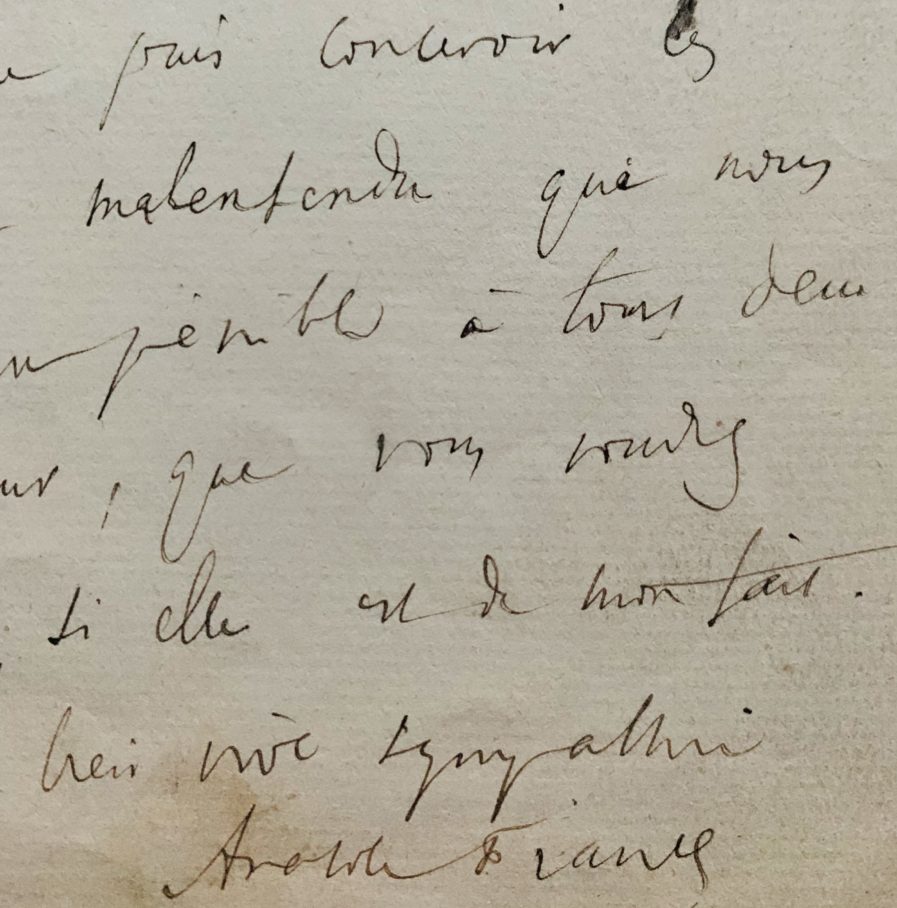 puis concevoir les
malentendu que nous
pénible à tous deux
, que vous voudrez
si elle est de mon fait.
bien vive sympathie
Anatole France